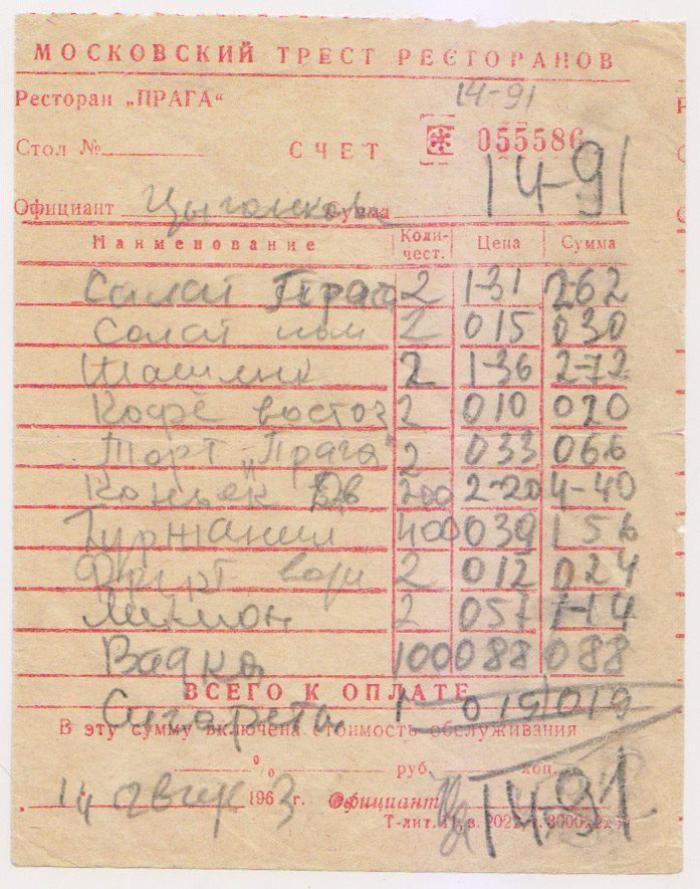 МОСКОВСКИЙ ТРЕСТ РЕСТОРАНОВ
Ресторан „ПРАГА“ 14-91
Стол № СЧЕТ 055586
14-91
Официант Сумма
Наименование Коли-чест. Цена Сумма
Салат Прага 2 1-31 2-62
Салат пом 2 015 030
Шашлык 2 1-36 2-72
Кофе восточ 2 010 020
Торт „Прага" 2 033 066
Коньяк 200 2-20 4-40
Гурджаани 400 039 156
Фрукт вода 2 012 024
Лимон 2 057 1-14
Водка 100 088 088
ВСЕГО К ОПЛАТЕ
Сигареты 1 019 019
В эту сумму включена стоимость обслуживания
% руб. коп.
14 август 1963 г. Официант 14-91
Т-лит.